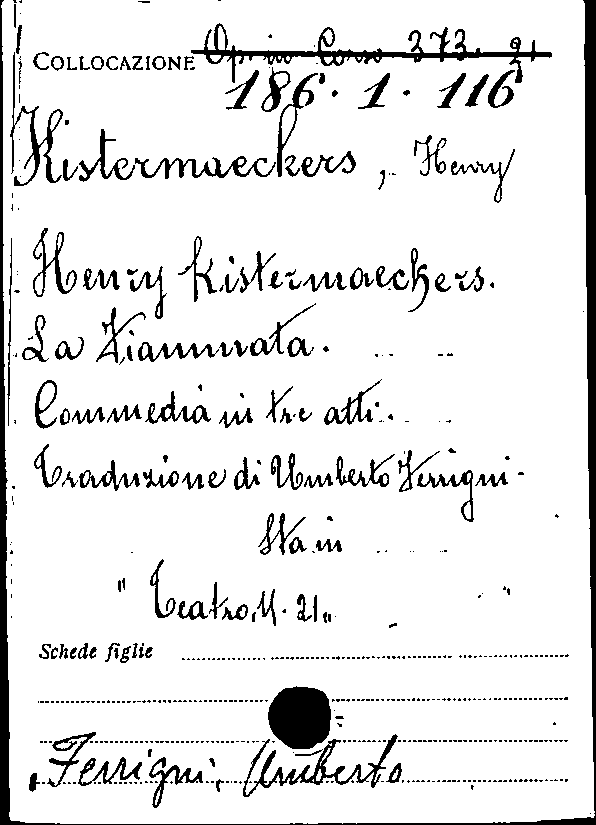 COLLOCAZIONE Op. in Corso 373. 21
186. 1. 116
Kistermaeckers, Henry
Henry Kistermaeckers.
La Fiammata.
Commedia in tre atti.
Traduzione di Umberto Ferrigni.
Sta in
" Teatro, N. 21,, "
Schede figlie
Ferrigni, Umberto